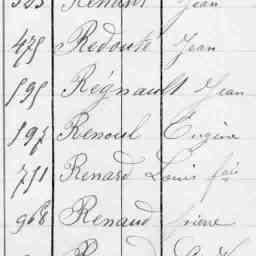 Renault Jean
475 Redouté Jean
595 Régnault Jean
197 Renoul Eugène
711 Renard Louis fils
968 Renaud pierre